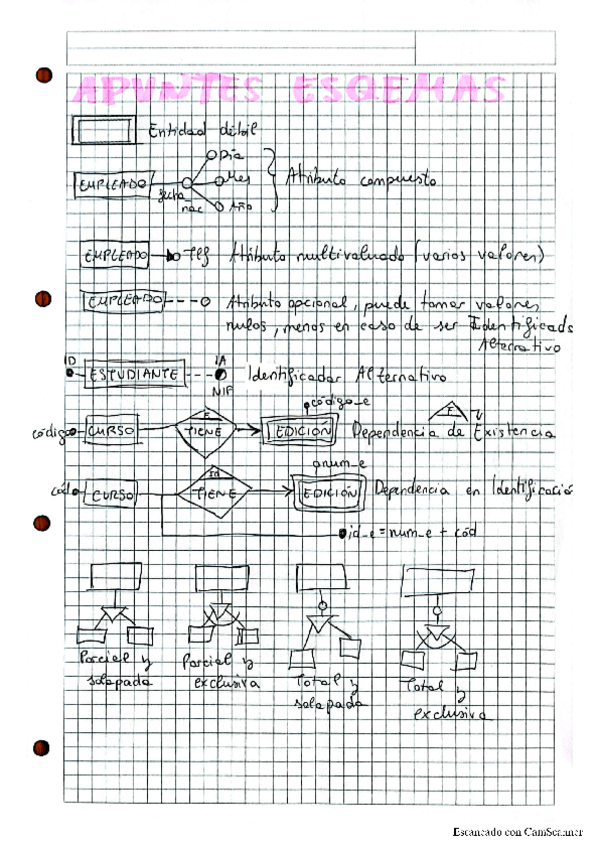 APUNTES ESQEMAS
Entidad débil
Día
EMPLEADO
Mes
Atributo compuesto
fecha_
nac
Año
EMPLEADO
Tlf
Atributo multivaluado (varios valores)
EMPLEADO
Atributo opcional, puede tomar valores
nulos, menos en caso de ser Identificado
Alternativo
ID
IA
ESTUDIANTE
Identificador Alternativo
NIF
código_e
E
código
CURSO
TIENE
EDICIÓN
Dependencia de Existencia
num_e
id
cód
CURSO
TIENE
EDICIÓN
Dependencia en Identificació
id_e = num_e + cód
Parcial y
solapada
Parcial y
exclusiva
Total y
solapada
Total y
exclusiva
Escaneado con CamScanner